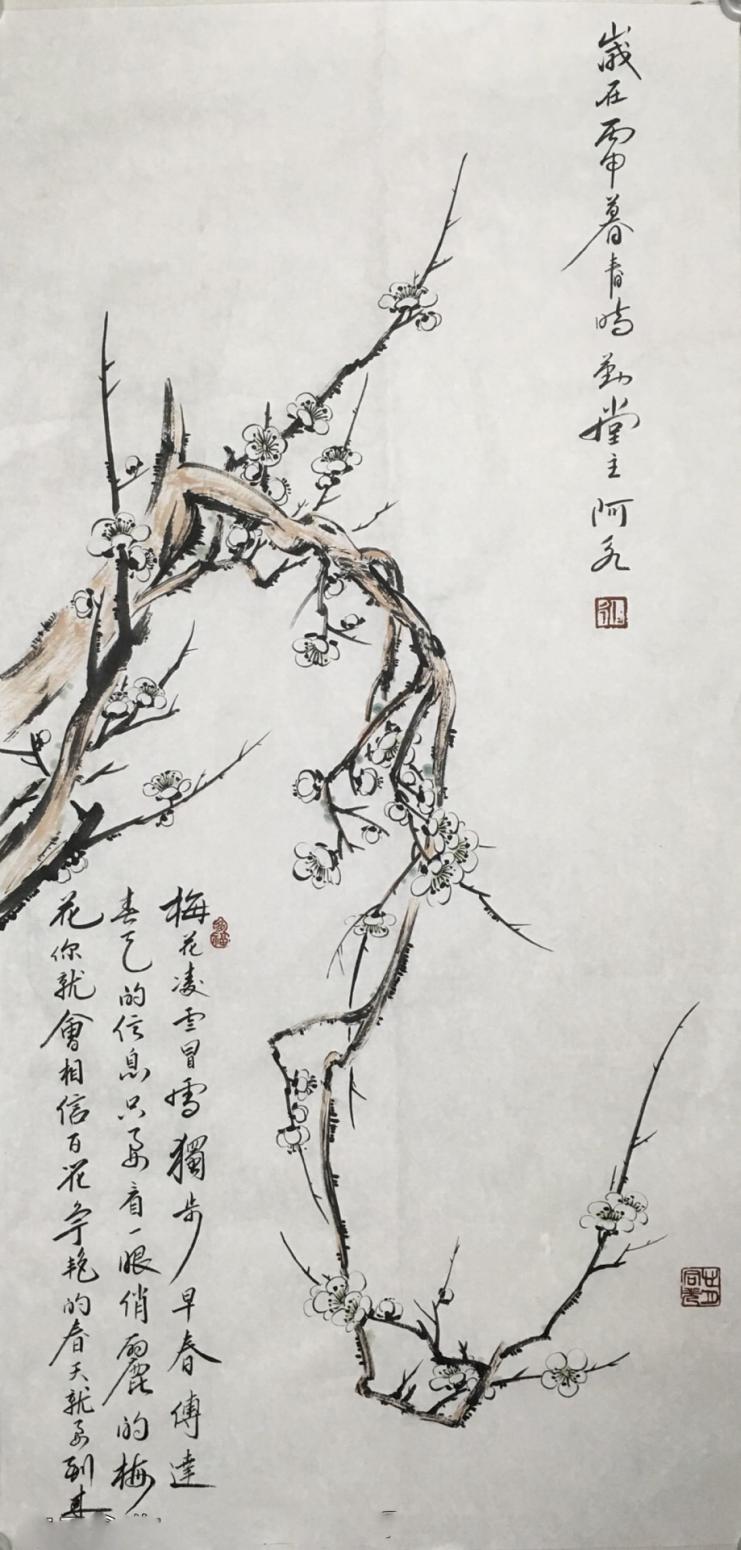 歲在丙申暮春 勤堂主阿
梅花凌雲冒雪獨步早春傳達
春天的信息只要看一眼俏麗的梅
花你就會相信百花爭艳的春天就要到来